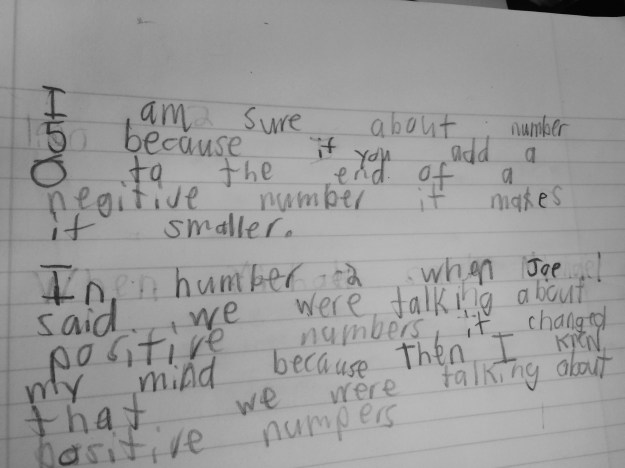 I am sure about number
5 because if you add a
0 to the end of a
negitive number it makes
it smaller.
In number 2 when Joe
said we were talking about
positive numbers, it changed
my mind because then I knew
that we were talking about
positive numbers